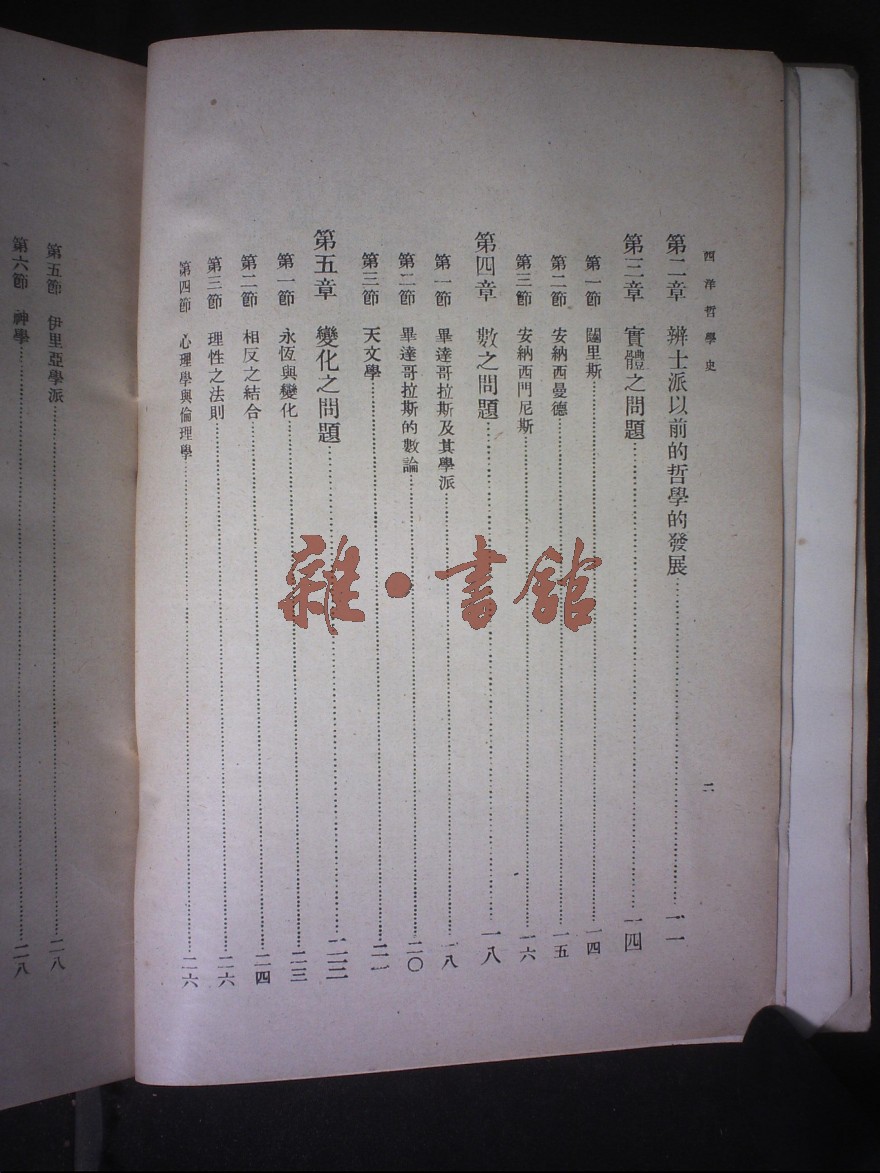 西洋哲學史
二
第二章 辨士派以前的哲學的發展 一一
第三章 實體之問題 一四
第一節 闥里斯 一四
第二節 安納西曼德 一五
第三節 安納西門尼斯 一六
第四章 數之問題 一八
第一節 畢達哥拉斯及其學派 一八
第二節 畢達哥拉斯的數論 二〇
第三節 天文學 二一
第五章 變化之問題
第一節 永恆與變化 二三
第二節 相反之結合 二四
第三節 理性之法則 二六
第四節 心理學與倫理學 二六
第五節 伊里亞學派 二八
第六節 神學 二八
雜·書館